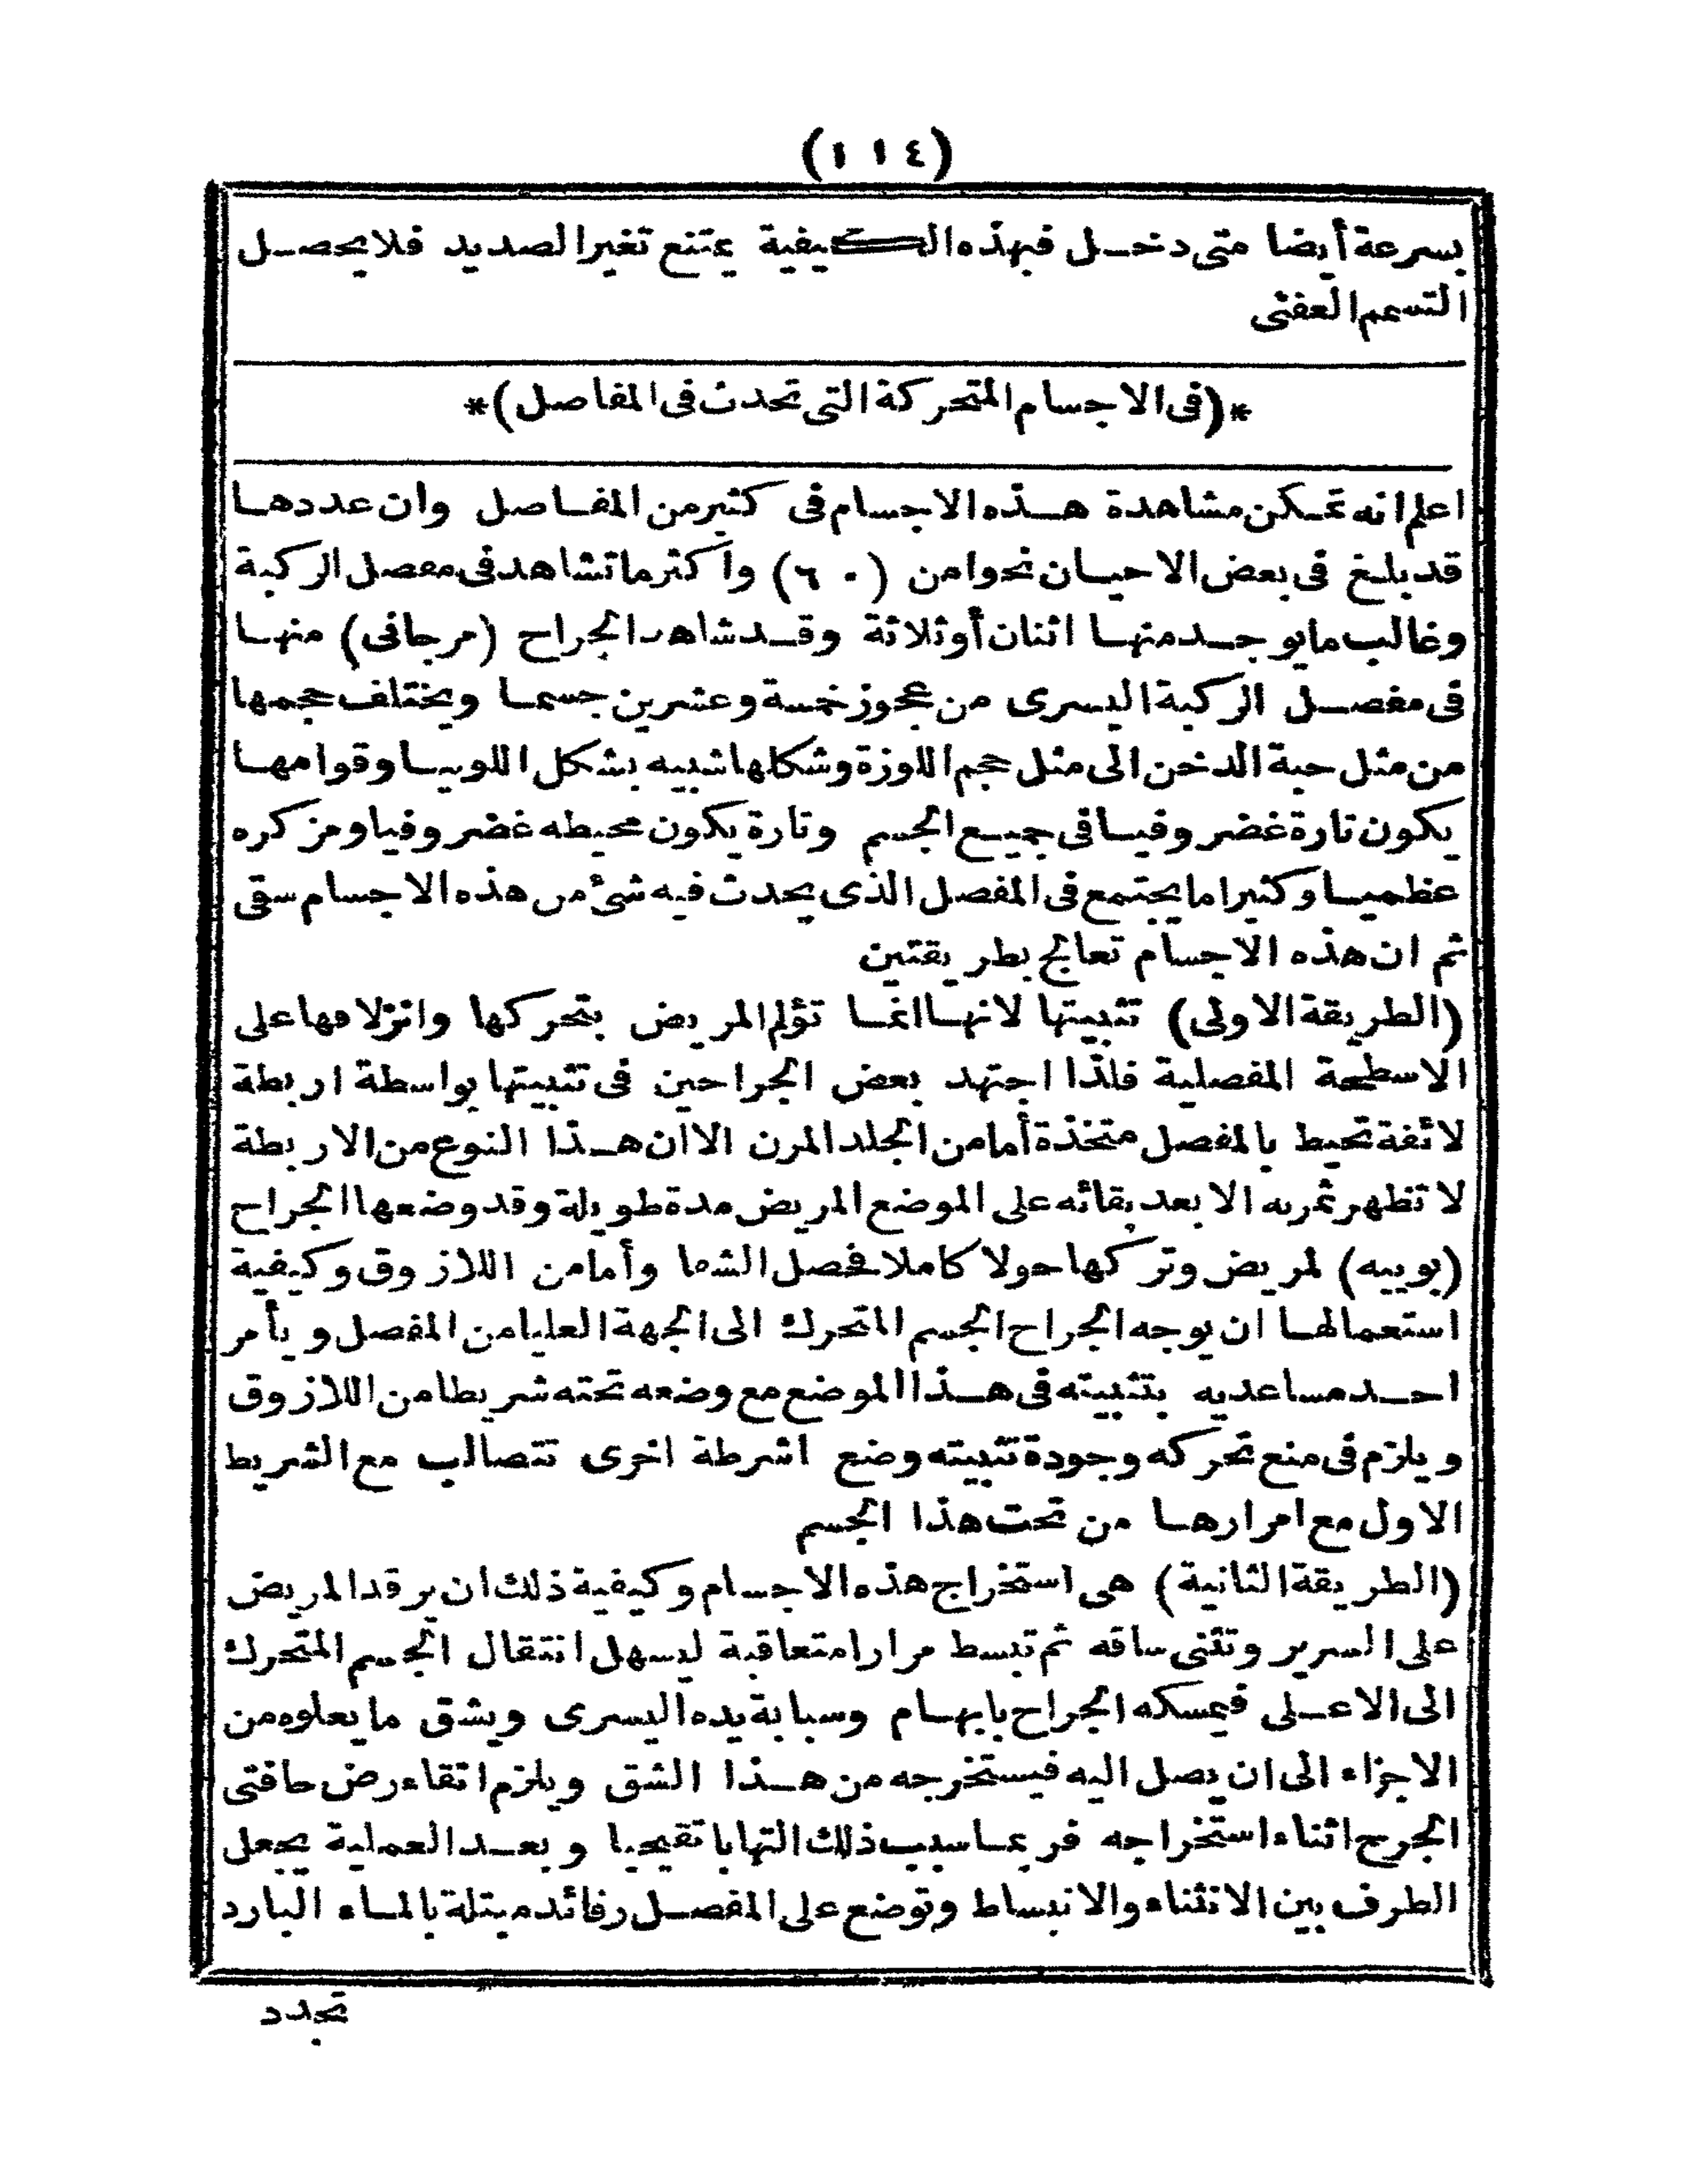 (١١٤)
بسرعة أيضا متى دخل فبهذه الكيفية يمتنع تغير الصديد فلا يحصل
التسمم العفنى
*(فى الاجسام المتحركة التى تحدث فى المفاصل)*
اعلم انه تمكن مشاهدة هذه الاجسام فى كثير من المفاصل وان عددها
قد بلغ فى بعض الاحيان نحوا من (٦٠) واكثر ما تشاهد فى مفصل الركبة
وغالب ما يوجد منها اثنان أو ثلاثة وقد شاهد الجراح (مرجانى) منها
فى مفصل الركبة اليسرى من عجوز خمسة وعشرين جسما ويختلف حجمها
من مثل حبة الدخن الى مثل حجم اللوزة وشكلها شبيه بشكل اللوبيا وقوامها
يكون تارة غضروفيا فى جميع الجسم وتارة يكون محيطه غضروفيا ومركزه
عظميا وكثيرا ما يجتمع فى المفصل الذى يحدث فيه شئ من هذه الاجسام سقى
ثم ان هذه الاجسام تعالج بطريقتين
(الطريقة الاولى) تثبيتها لانها انما تؤلم المريض بتحركها وانزلاقها على
الاسطحة المفصلية فلذا اجتهد بعض الجراحين فى تثبيتها بواسطة اربطة
لائقة تحيط بالمفصل متخذة أما من الجلد المرن الا ان هذا النوع من الاربطة
لا تظهر ثمرته الا بعد بقائه على الموضع المريض مدة طويلة وقد وضعها الجراح
(بوييه) لمريض وتركها حولا كاملا فحصل الشفا وأما من اللازوق وكيفية
استعمالها ان يوجه الجراح الجسم المتحرك الى الجهة العليا من المفصل ويأمر
احد مساعديه بتثبيته فى هذا الموضع مع وضعه تحته شريطا من اللازوق
ويلزم فى منع تحركه وجودة تثبيته وضع اشرطة اخرى تتصالب مع الشريط
الاول مع امرارها من تحت هذا الجسم
(الطريقة الثانية) هى استخراج هذه الاجسام وكيفية ذلك ان يرقد المريض
على السرير وتثنى ساقه ثم تبسط مرارا متعاقبة ليسهل انتقال الجسم المتحرك
الى الاعلى فيمسكه الجراح بابهام وسبابة يده اليسرى ويشق ما يعلوه من
الاجزاء الى ان يصل اليه فيستخرجه من هذا الشق ويلزم اتقاء رض حافتى
الجرح اثناء استخراجه فربما سبب ذلك التهابا تقيحيا وبعد العملية يجعل
الطرف بين الانثناء والانبساط وتوضع على المفصل رفائد مبتلة بالماء البارد
تجدد